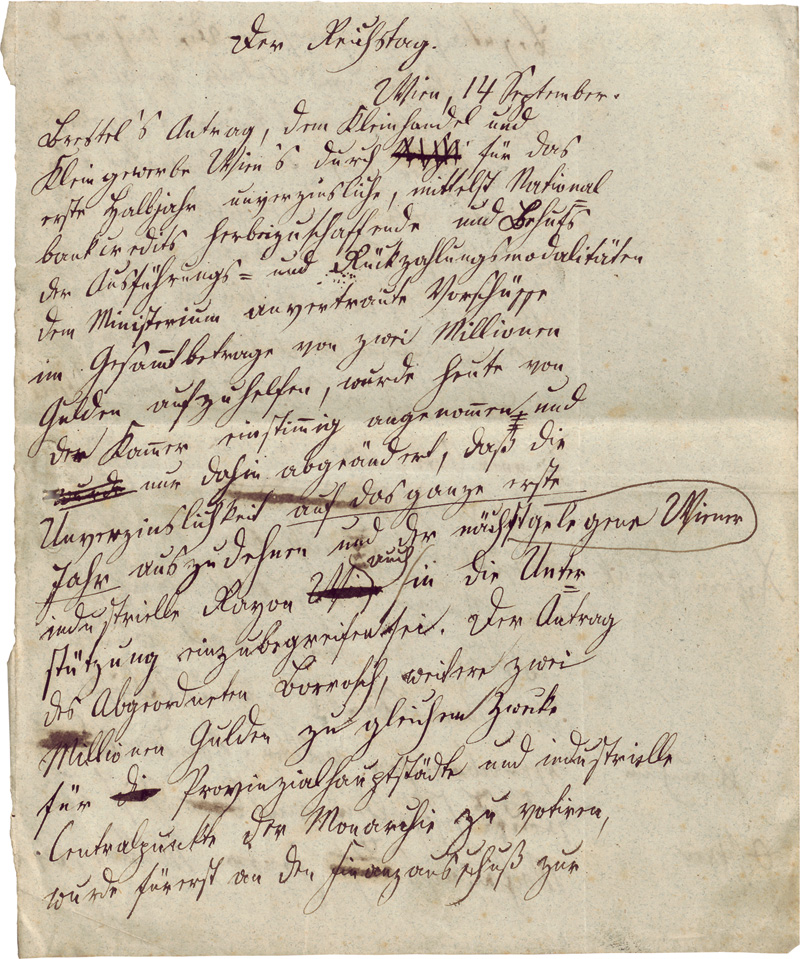 Der Reichstag.
Wien, 14 September.
Brestel's Antrag, dem Kleinhandel und
Kleingewerbe Wien's durch für das
erste Halbjahr unverzinsliche, mittelst National=
bankcredits herbeizuschaffende und Behufs
der Ausführungs= und Rückzahlungsmodalitäten
dem Ministerium anvertraute Vorschüsse
im Gesammtbetrage von zwei Millionen
Gulden aufzuhelfen, wurde heute von
der Kammer einstimmig angenommen und
wurde nur dahin abgeändert, daß die
Unverzinslichkeit auf das ganze erste
Jahr auszudehnen und der nächstgelegene Wiener
industrielle Rayon auch in die Unter=
stützung einzubegreifen sei. Der Antrag
des Abgeordneten Borrosch, weitere zwei
Millionen Gulden zu gleichem Zwecke
für die Provinzialhauptstädte und industrielle
Centralpunkte der Monarchie zu votiren,
wurde fürerst an den Finanzausschuß zur